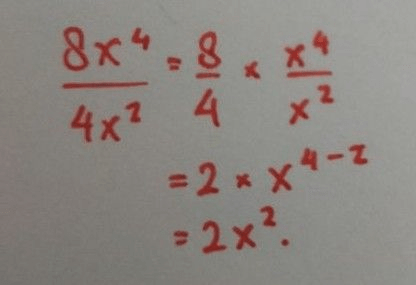 8x⁴/4x² = 8/4 × x⁴/x²
= 2 × x⁴⁻²
= 2x².